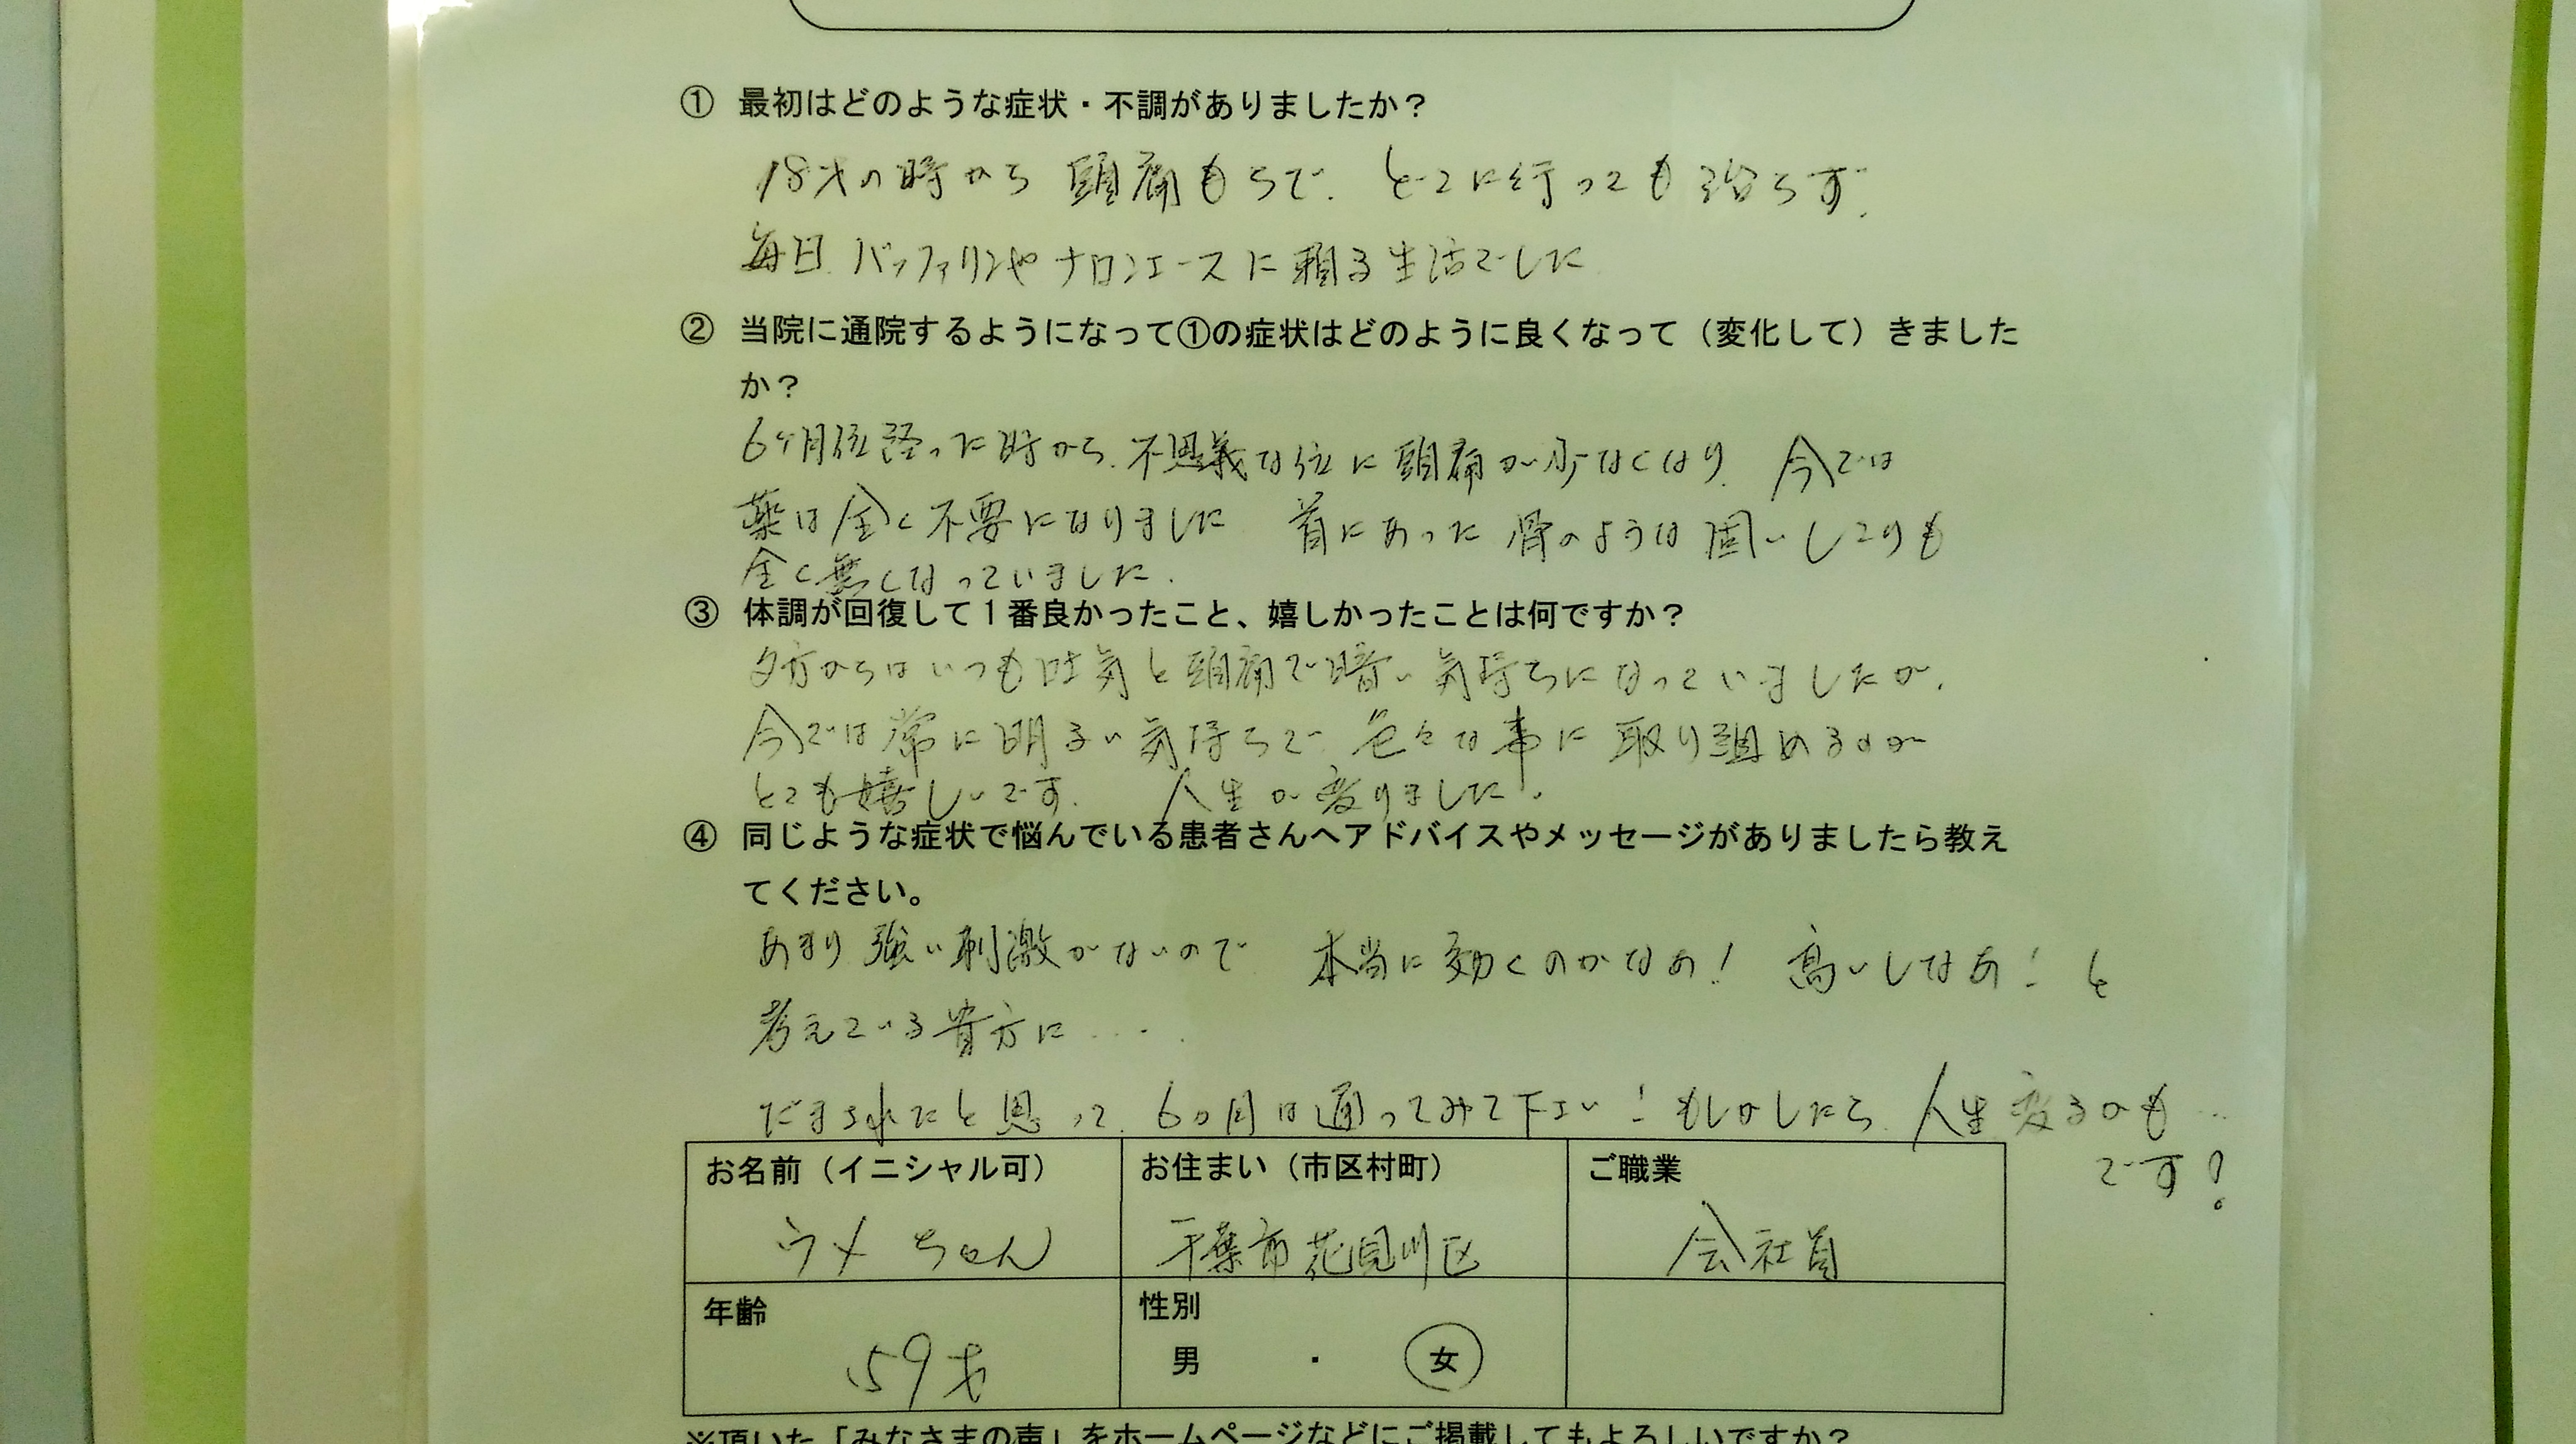 ① 最初はどのような症状・不調がありましたか？
18才の時から 頭痛もちで、どこに行っても治らず、
毎日、バッファリンやナロンエースに頼る生活でした
② 当院に通院するようになって①の症状はどのように良くなって（変化して）きました
か？
6ヶ月位経った時から、不思義な位に頭痛が少なくなり、今では
薬は全く不要になりました 首にあった骨のような固いしこりも
全く無くなっていました.
③ 体調が回復して１番良かったこと、嬉しかったことは何ですか？
夕方からはいつも吐気と頭痛で暗い気持ちになっていましたが、
今では常に明るい気持ちで、色々な事に取り組めるのが
とても嬉しいです. 人生が変りました.
④ 同じような症状で悩んでいる患者さんへアドバイスやメッセージがありましたら教え
てください。
あまり強い刺激がないので 本当に効くのかなあ! 高いしなあ! と
考えている貴方に....
だまされたと思って、6ヵ月は通ってみて下さい! もしかしたら、人生変るかも…
です!
お名前（イニシャル可） お住まい（市区村町） ご職業
ウメちゃん 千葉市花見川区 会社員
年齢 性別
59才 男 ・ 女
※頂いた「みなさまの声」をホームページなどにご掲載してもよろしいですか？